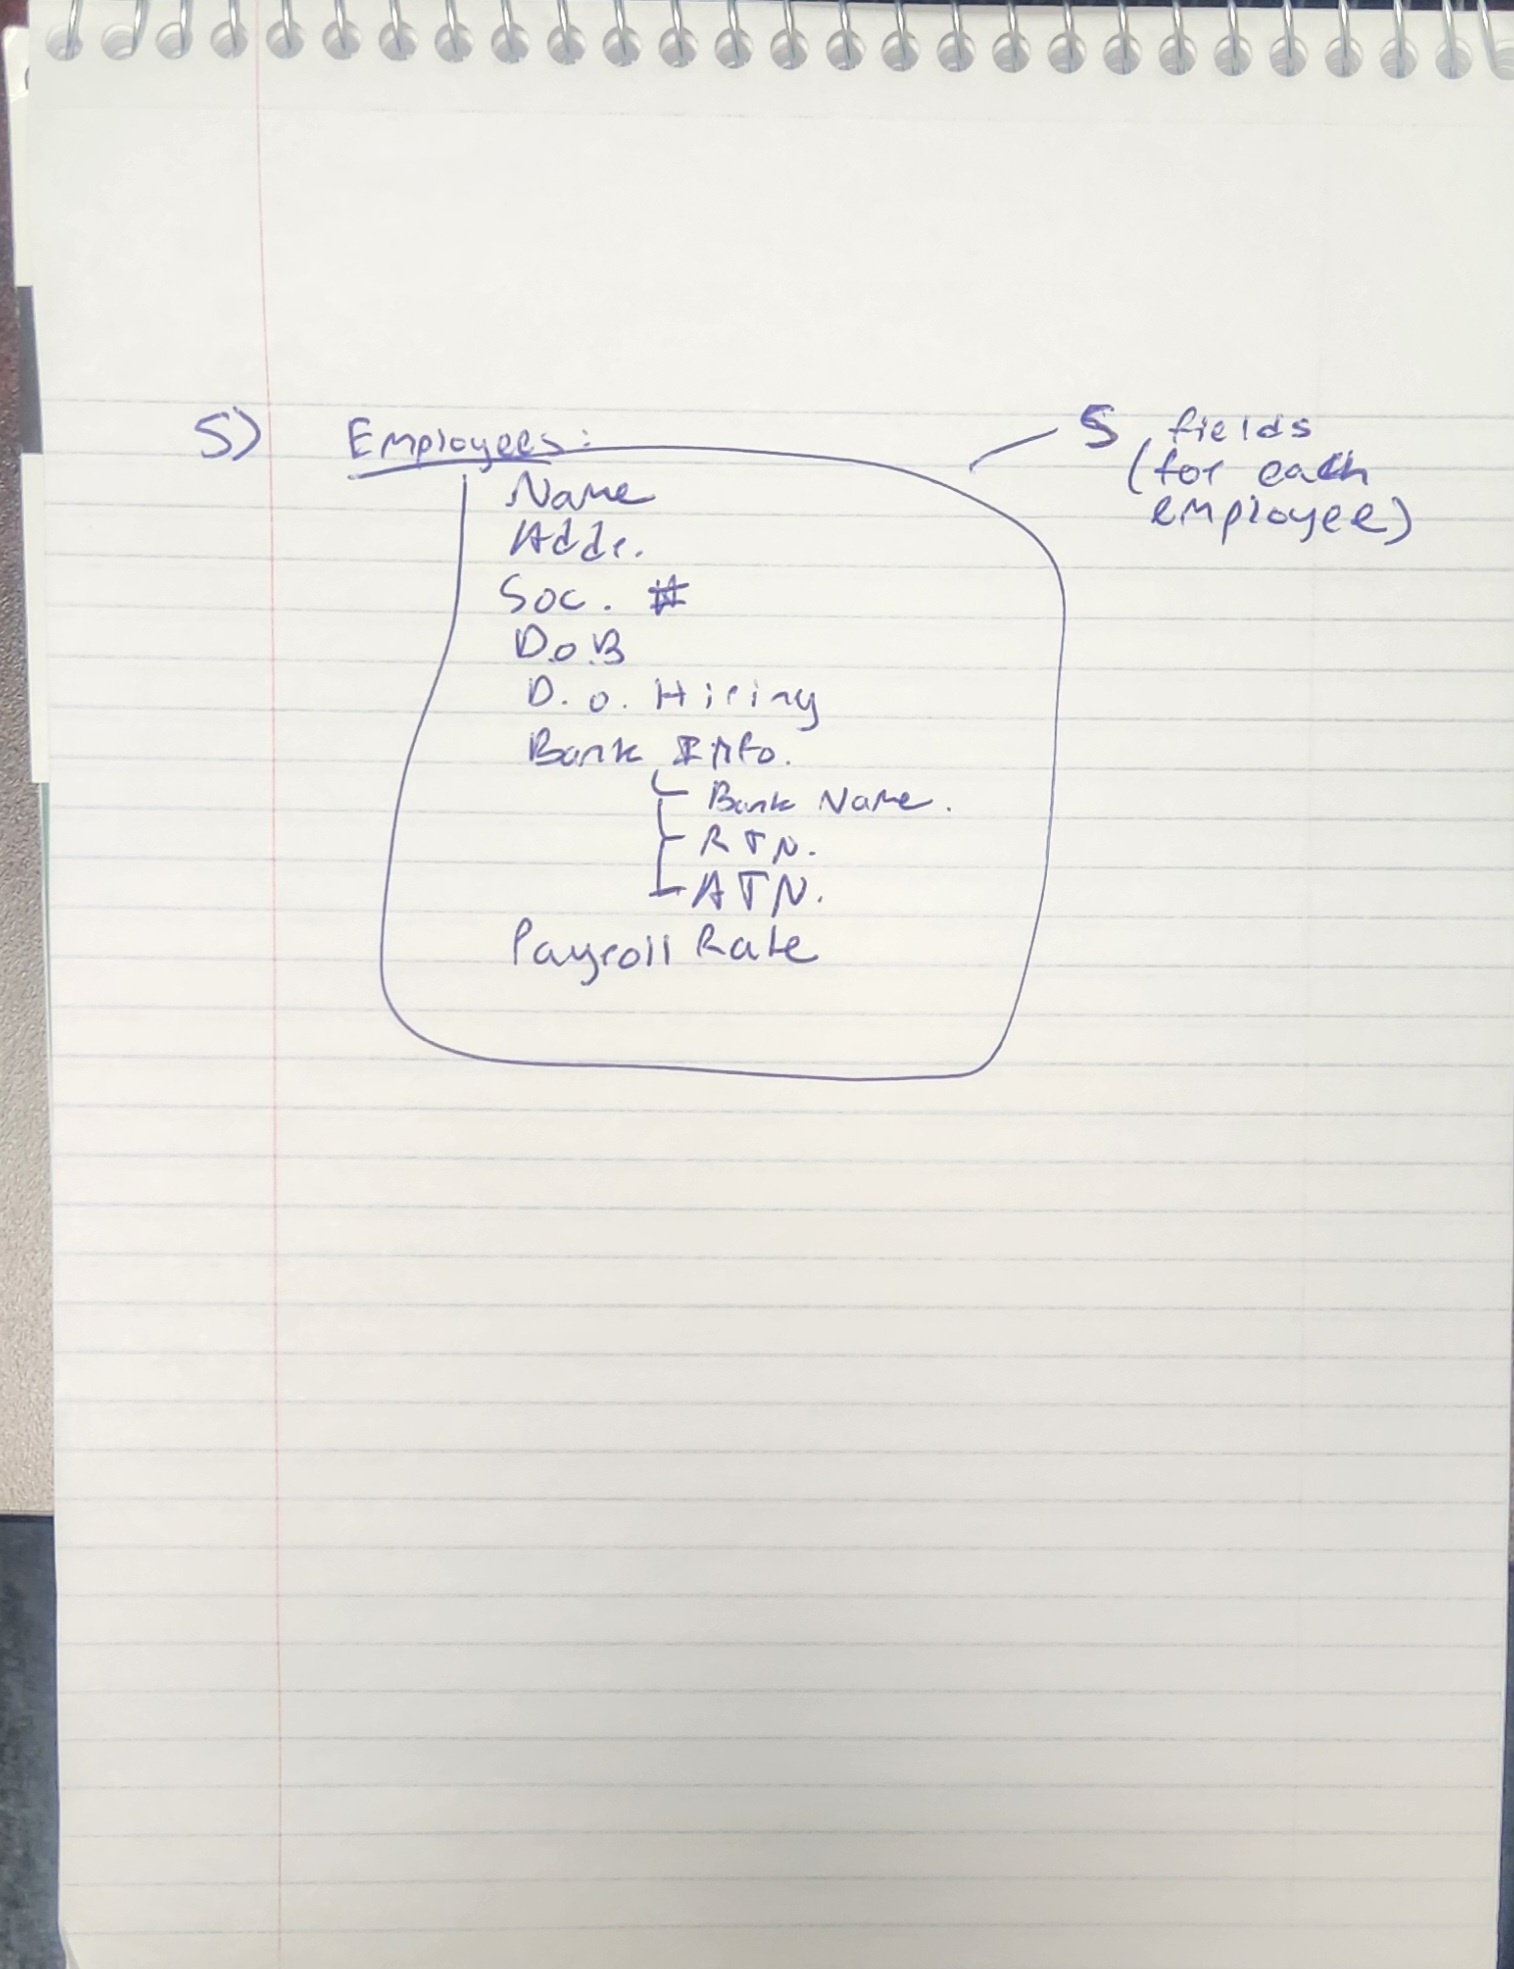 5) Employees:
Name
Addr.
Soc. #
D.o.B
D. o. Hiring
Bank Info.
Bank Name.
RTN.
ATN.
Payroll Rate
5 fields
(for each
employee)